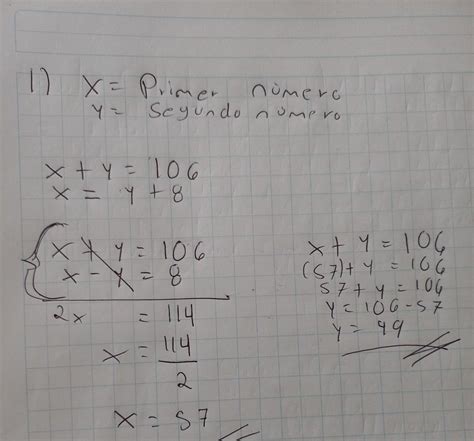 1) X = Primer número
Y = Segundo número
x + y = 106
x = y + 8
x + y = 106
x - y = 8
2x = 114
x = 114
2
x = 57
x + y = 106
(57) + y = 106
57 + y = 106
y = 106 - 57
y = 49